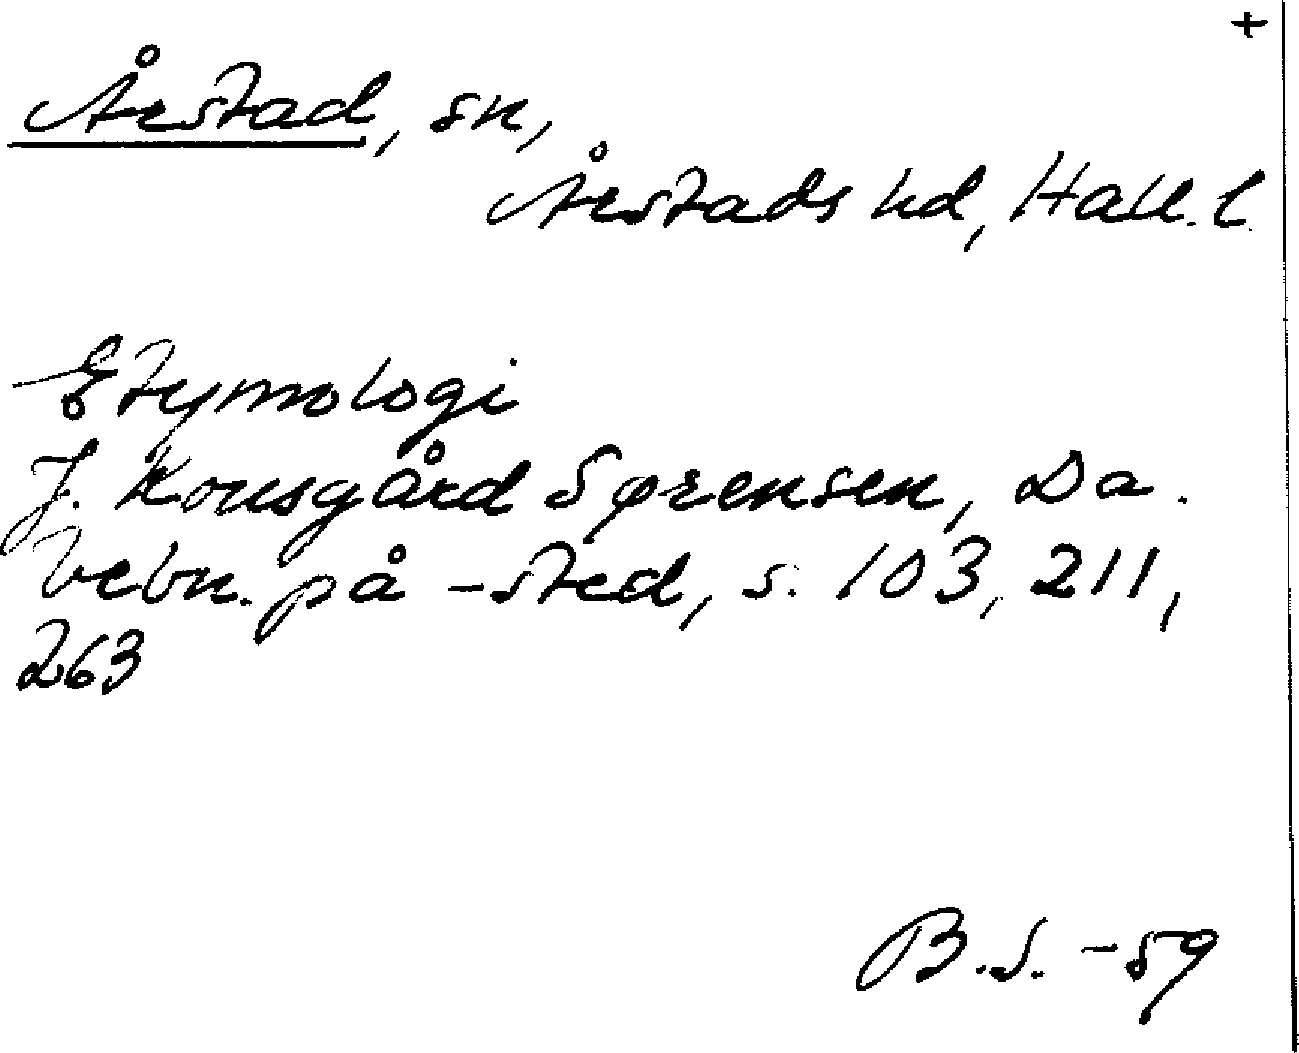 +
Årstad, sn,
Årstads hd, Hall. l.
Etymologi
J. Kousgård Sørensen, Da.
bebn. på -sted, s. 103, 211,
263
B.S. -59